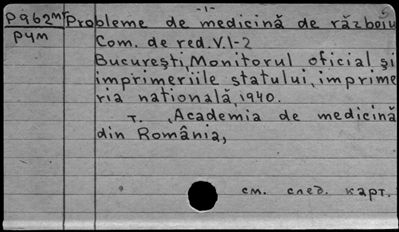 -1-
P962mr Probleme de medicină de războiu
P4m Com. de red. V.1-2
București, Monitorul oficial și
imprimeriile statului, imprime
ria națională, 1940.
T. , Academia de medicină
din România,
см. след. карт.